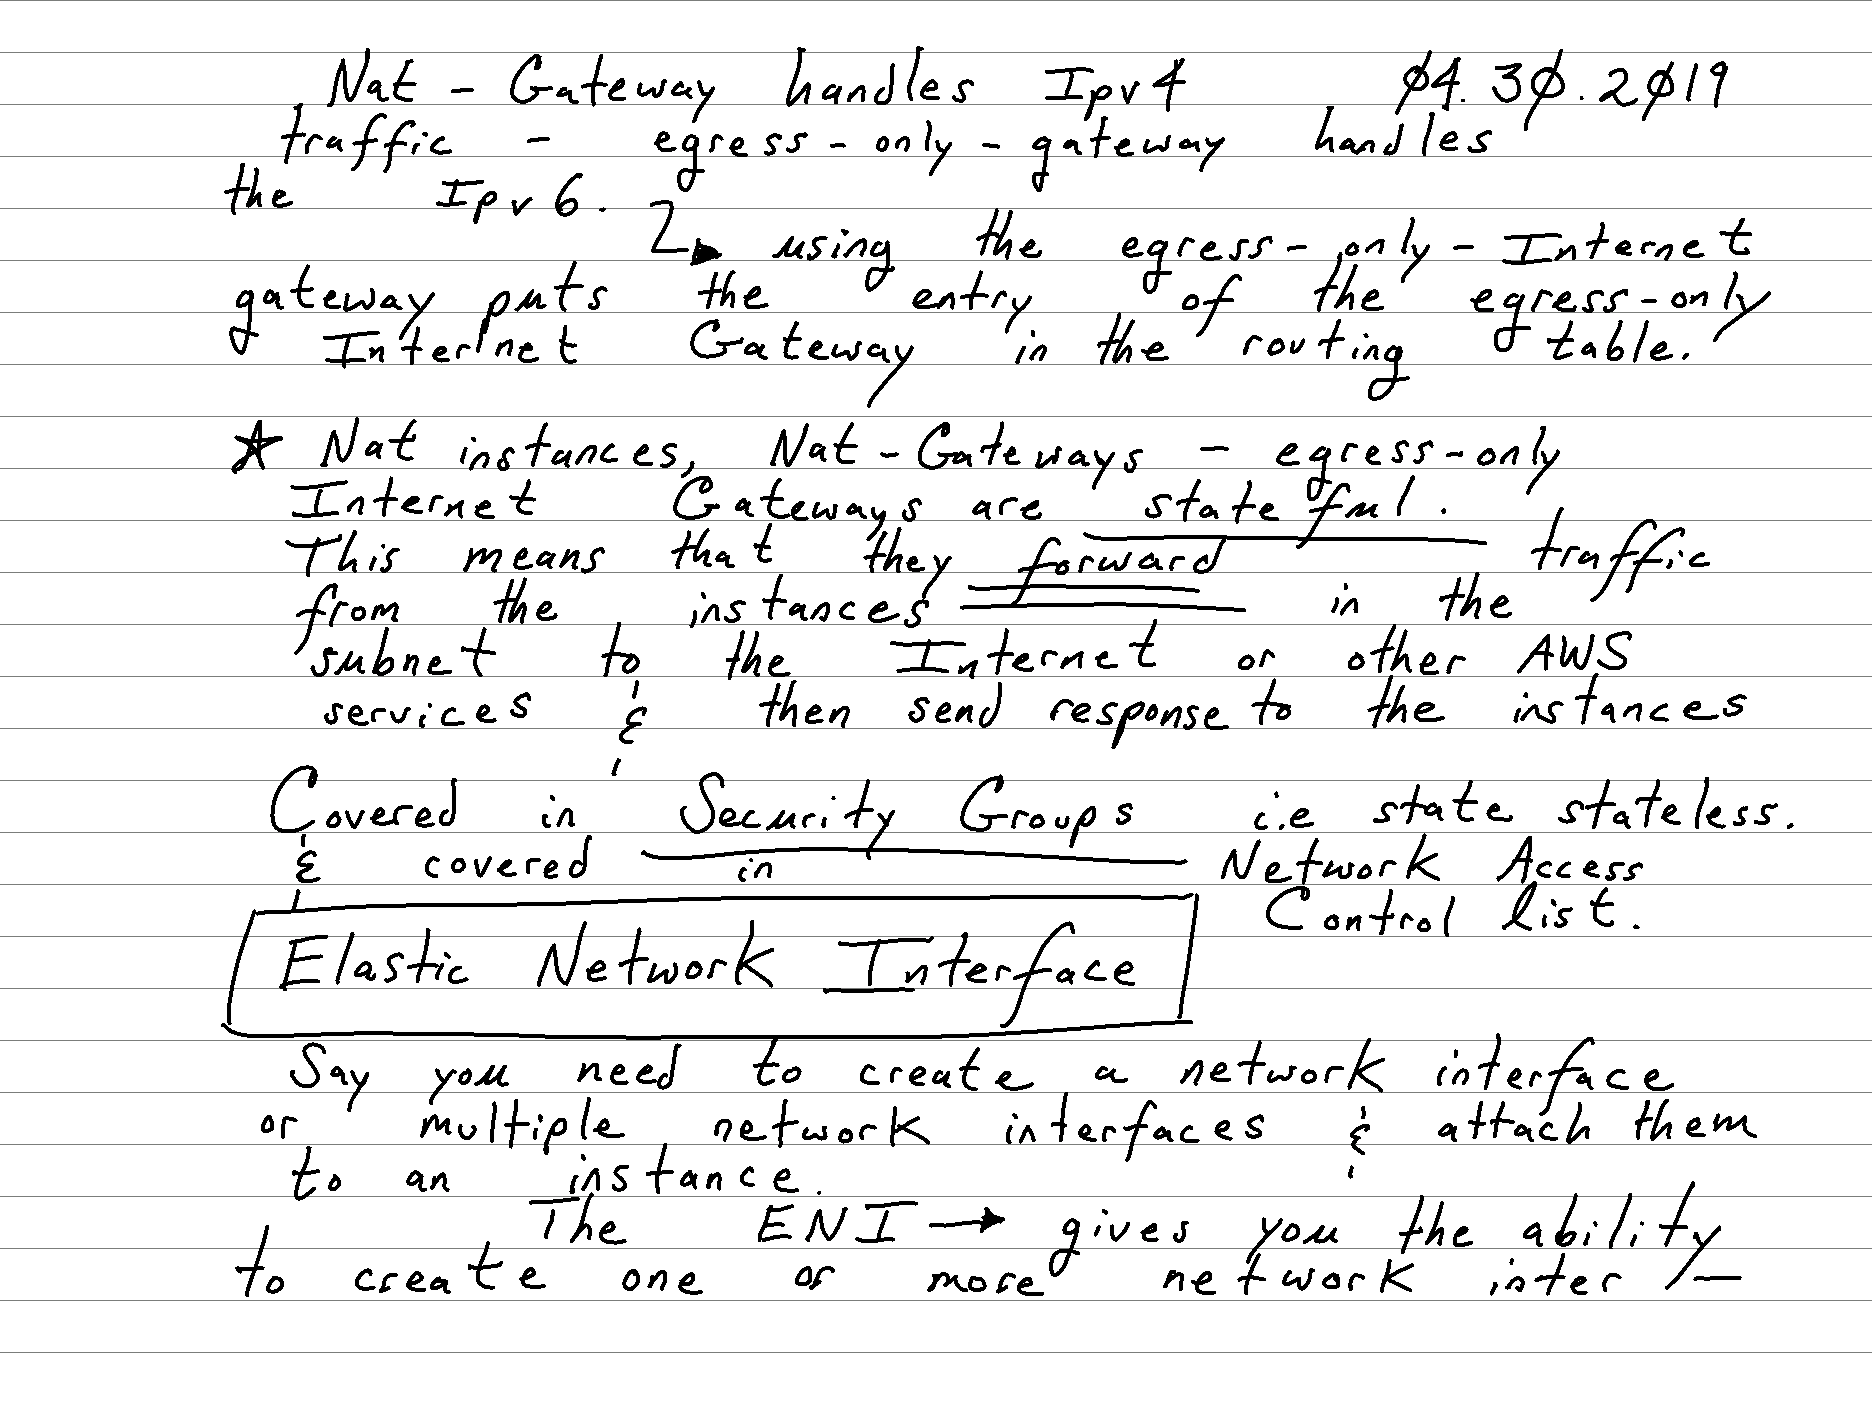 Nat - Gateway handles Ipv4 04.30.2019
traffic - egress-only-gateway handles
the Ipv6.
using the egress-only-Internet
gateway puts the entry of the egress-only
Internet Gateway in the routing table.
* Nat instances, Nat-Gateways - egress-only
Internet Gateways are stateful.
This means that they forward traffic
from the instances in the
subnet to the Internet or other AWS
services & then send response to the instances
Covered in Security Groups i.e state stateless.
& covered in Network Access
Control list.
Elastic Network Interface
Say you need to create a network interface
or multiple network interfaces & attach them
to an instance.
The ENI → gives you the ability
to create one or more network inter/—